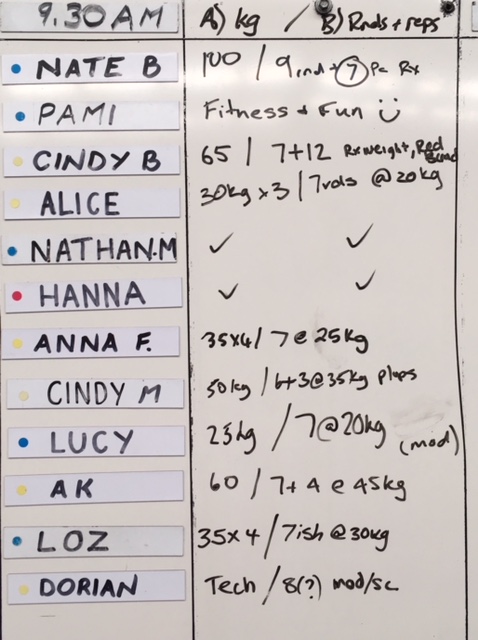 9.30 AM A) kg / B) Rnds + reps
NATE B 100 / 9 rnd + 9 Pc Rx
PAMI Fitness + Fun
CINDY B 65 / 7+12 Rx weight, Red Band
ALICE 30kg x 3 / 7 rds @ 20kg
NATHAN.M ✓ ✓
HANNA ✓ ✓
ANNA F. 35x4 / 7 @ 25kg
CINDY M 50kg / 6+3 @ 35kg
LUCY 25kg / 7 @ 20kg (mod)
AK 60 / 7+4 @ 45kg
LOZ 35x4 / 7ish @ 30kg
DORIAN Tech / 8(?) mod/sc